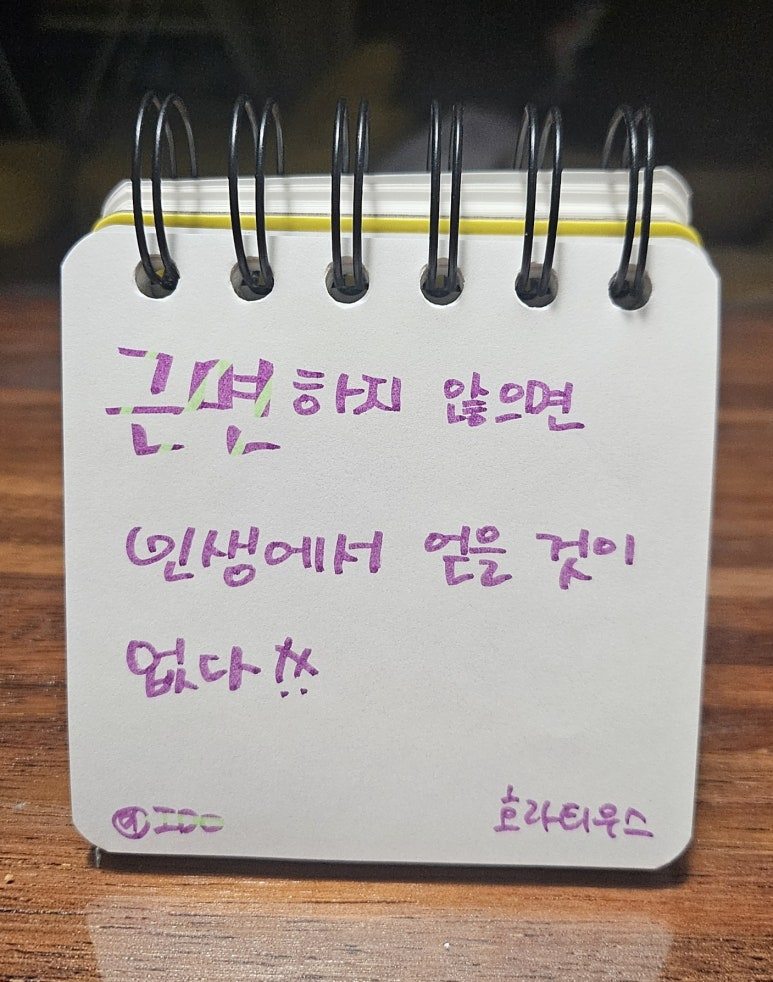 근면하지 않으면
인생에서 얻을 것이
없다!!
호라티우스